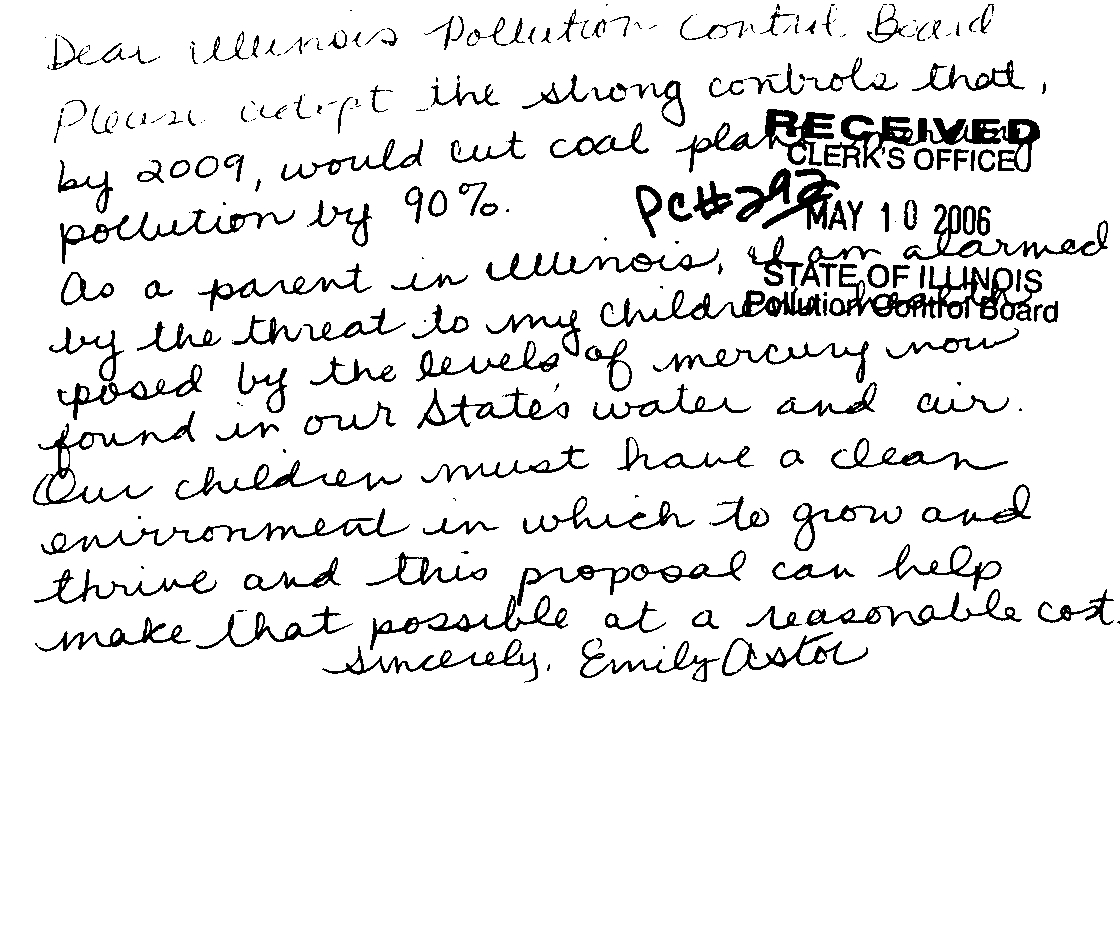 Dear Illinois Pollution Control Board
Please adopt the strong controls that,
by 2009, would cut coal plant
pollution by 90%.
As a parent in Illinois, I am alarmed
by the threat to my children's health
posed by the levels of mercury now
found in our State's water and air.
Our children must have a clean
enironment in which to grow and
thrive and this proposal can help
make that possible at a reasonable cost.
Sincerely, Emily Astor
RECEIVED
CLERK'S OFFICE
PC#292
MAY 10 2006
STATE OF ILLINOIS
Pollution Control Board